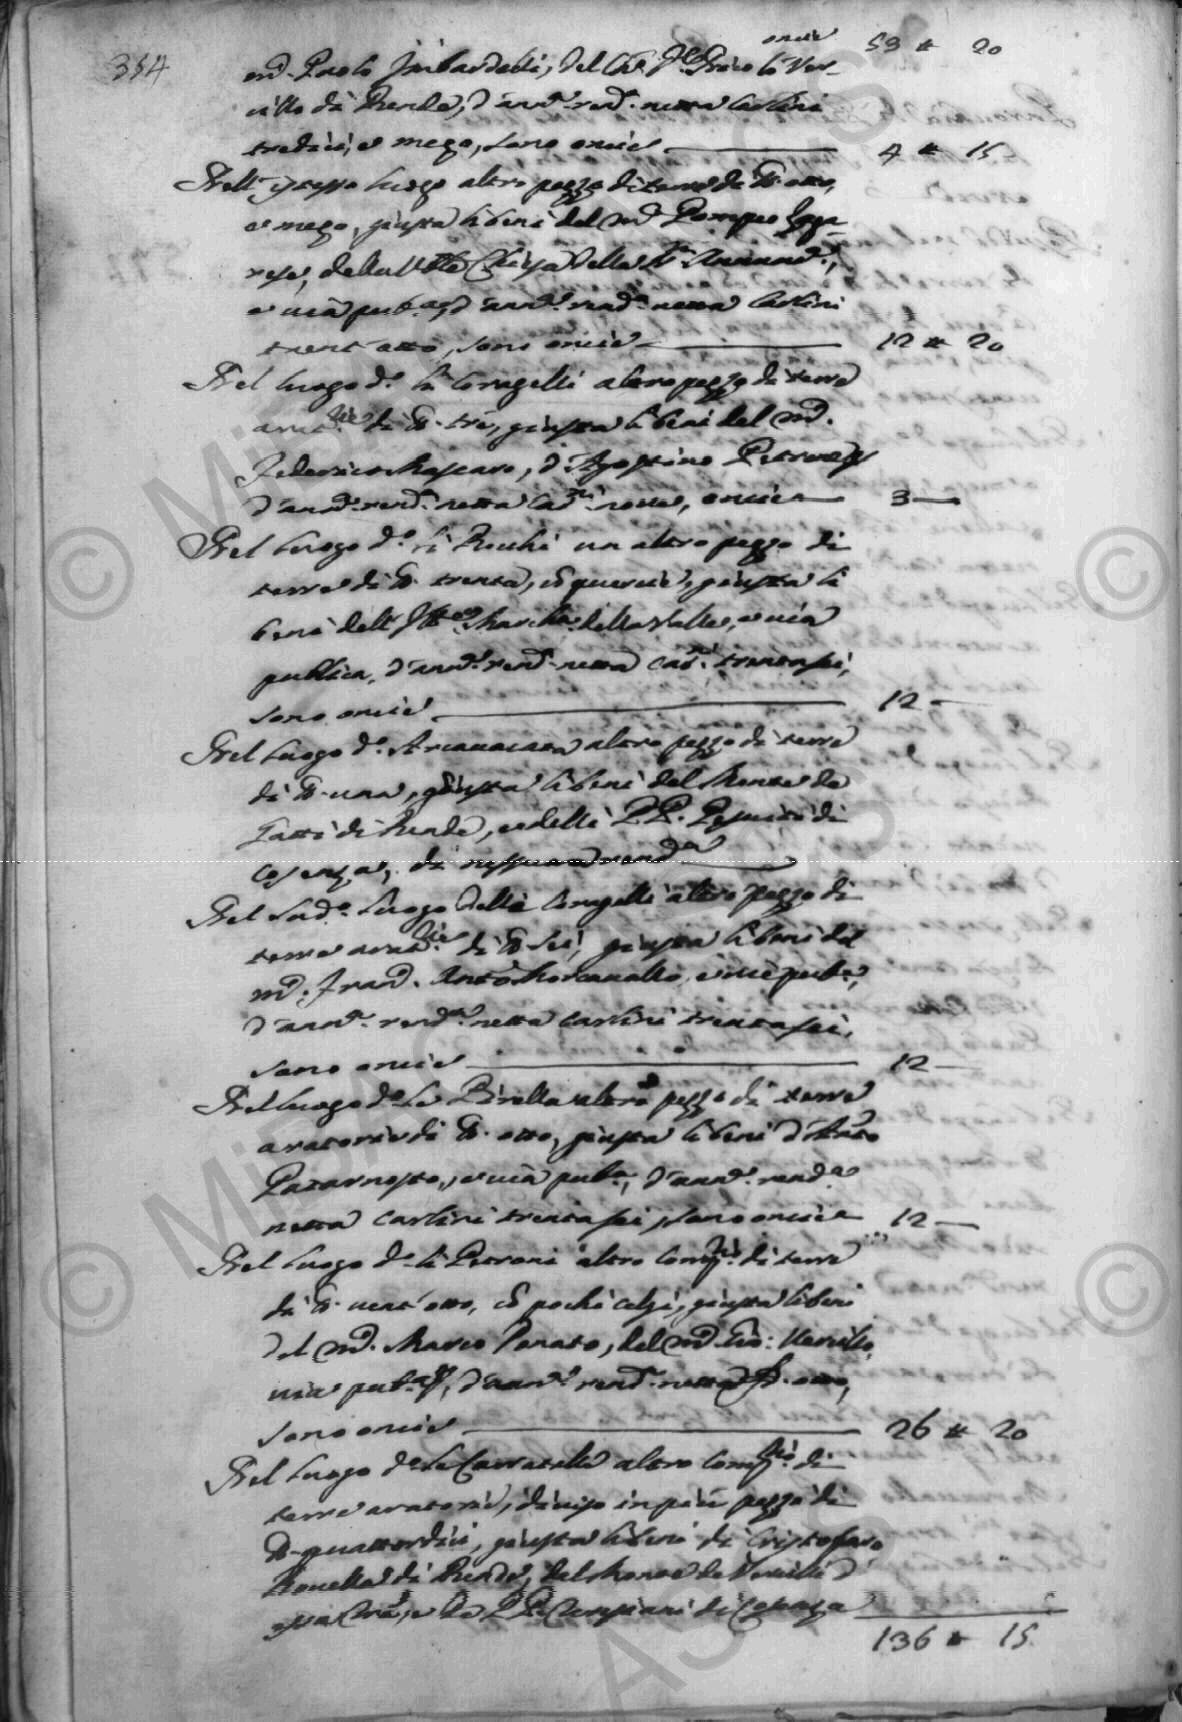 354
oncie 53 * 20
md. Paolo Lombardelli, del Ch.
villo di Rende, d'ann.l rend.a netta carlini
tredici, e mezo, sono oncie 4 * 15
Nell'istesso luogo altro pezzo di terre di tt. otto,
e mezo, giusta li beni del md. Pompeo
della Chiesa della SS. Annun.ta,
e via pub.a, d'ann.l rend.a netta carlini
trent'otto, sono oncie 12 * 20
Nel luogo d.o li Coragelli altro pezzo di terre
arat.rie di tt. tre, giusta li beni del md.
Federico Mascaro, d'Agostino Petrone
d'ann.l rend.a netta car.ni nove, oncie 3
Nel luogo d.o li Rocchi un altro pezzo di
terre di tt. trenta, con quercie, giusta li
beni dell'Ill. March. della Valle, e via
publica, d'ann.l rend.a netta car.ni trentasei,
sono oncie 12
Nel luogo d.o Arcavacata altro pezzo di terre
di tt. una, giusta li beni del Monte de
Fatti di Rende, e delli PP. Gesuiti di
Cosenza, di nessuna rend.a
Nel sud.o luogo delli Coragelli altro pezzo di
terre arat.rie di tt. sei, giusta li beni del
md. Fran. Ant.o Morcavallo, e via pub.a,
d'ann.l rend.a netta carlini trentasei,
sono oncie 12
Nel luogo d.o La Birella altro pezzo di terre
aratorie di tt. otto, giusta li beni d'Ant.o
e via pub.a, d'ann.l rend.a
netta carlini trentasei, sono oncie 12
Nel luogo d.o li Petroni altro comp.rio di terre
di tt. vent'otto, con pochi celzi, giusta li beni
del md. Marco Donato, del md. Gio: Vercillo,
via pub.a, d'ann.l rend.a netta otto,
sono oncie 26 * 20
Nel luogo d.o Le Carratelle altro comp.rio di
terre aratorie, diviso in più pezzi di
tt. quattordici, giusta li beni di Cristofaro
di Rende, del Monte de Vercilli d
essa Città, e de PP. di Cosenza
136 * 15